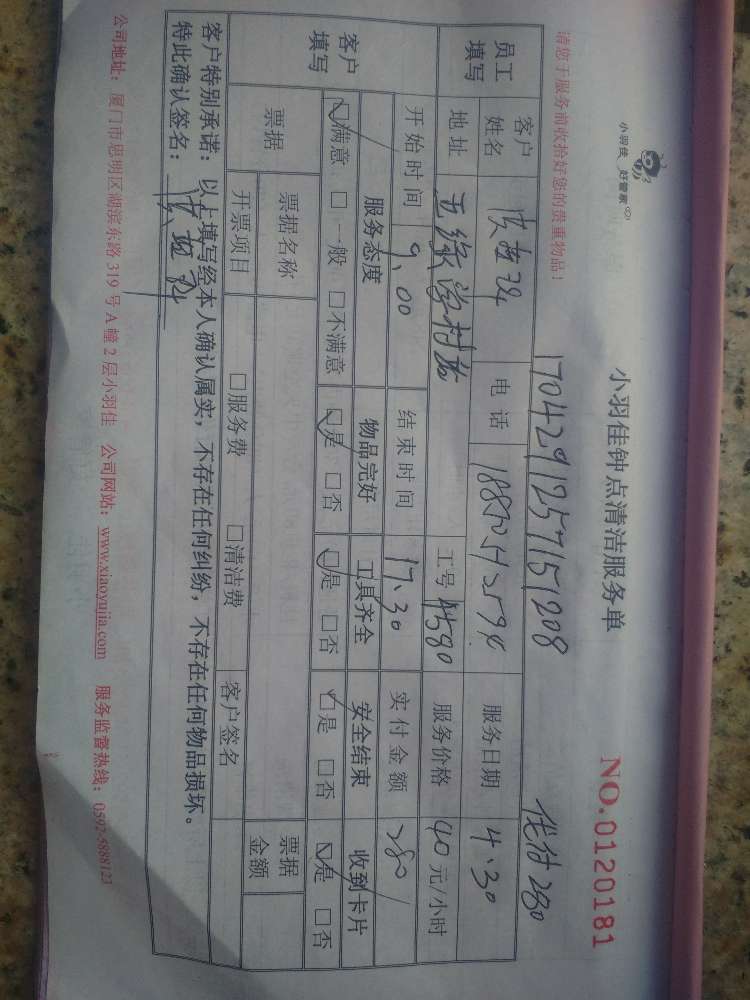 小羽佳 好管家
小羽佳钟点清洁服务单
NO.0120181
请您于服务前收拾好您的贵重物品！
1704291257151208
优付280
员工填写
客户姓名
电话
服务日期 4.30
地址 五缘学村
工号 4580
服务价格 40元/小时
开始时间 9.00
结束时间 17.30
实付金额 280
客户填写
服务态度 物品完好 工具齐全 安全结束 收到卡片
□满意 □一般 □不满意 □是 □否 □是 □否 □是 □否 □是 □否
票据
票据名称
票据金额
开票项目 □服务费 □清洁费 客户签名
客户特别承诺：以上填写经本人确认属实，不存在任何纠纷，不存在任何物品损坏。
特此确认签名：
公司地址：厦门市思明区湖滨东路319号A幢2层小羽佳 公司网站：www.xiaoyujia.com 服务监督热线：0592-5888123